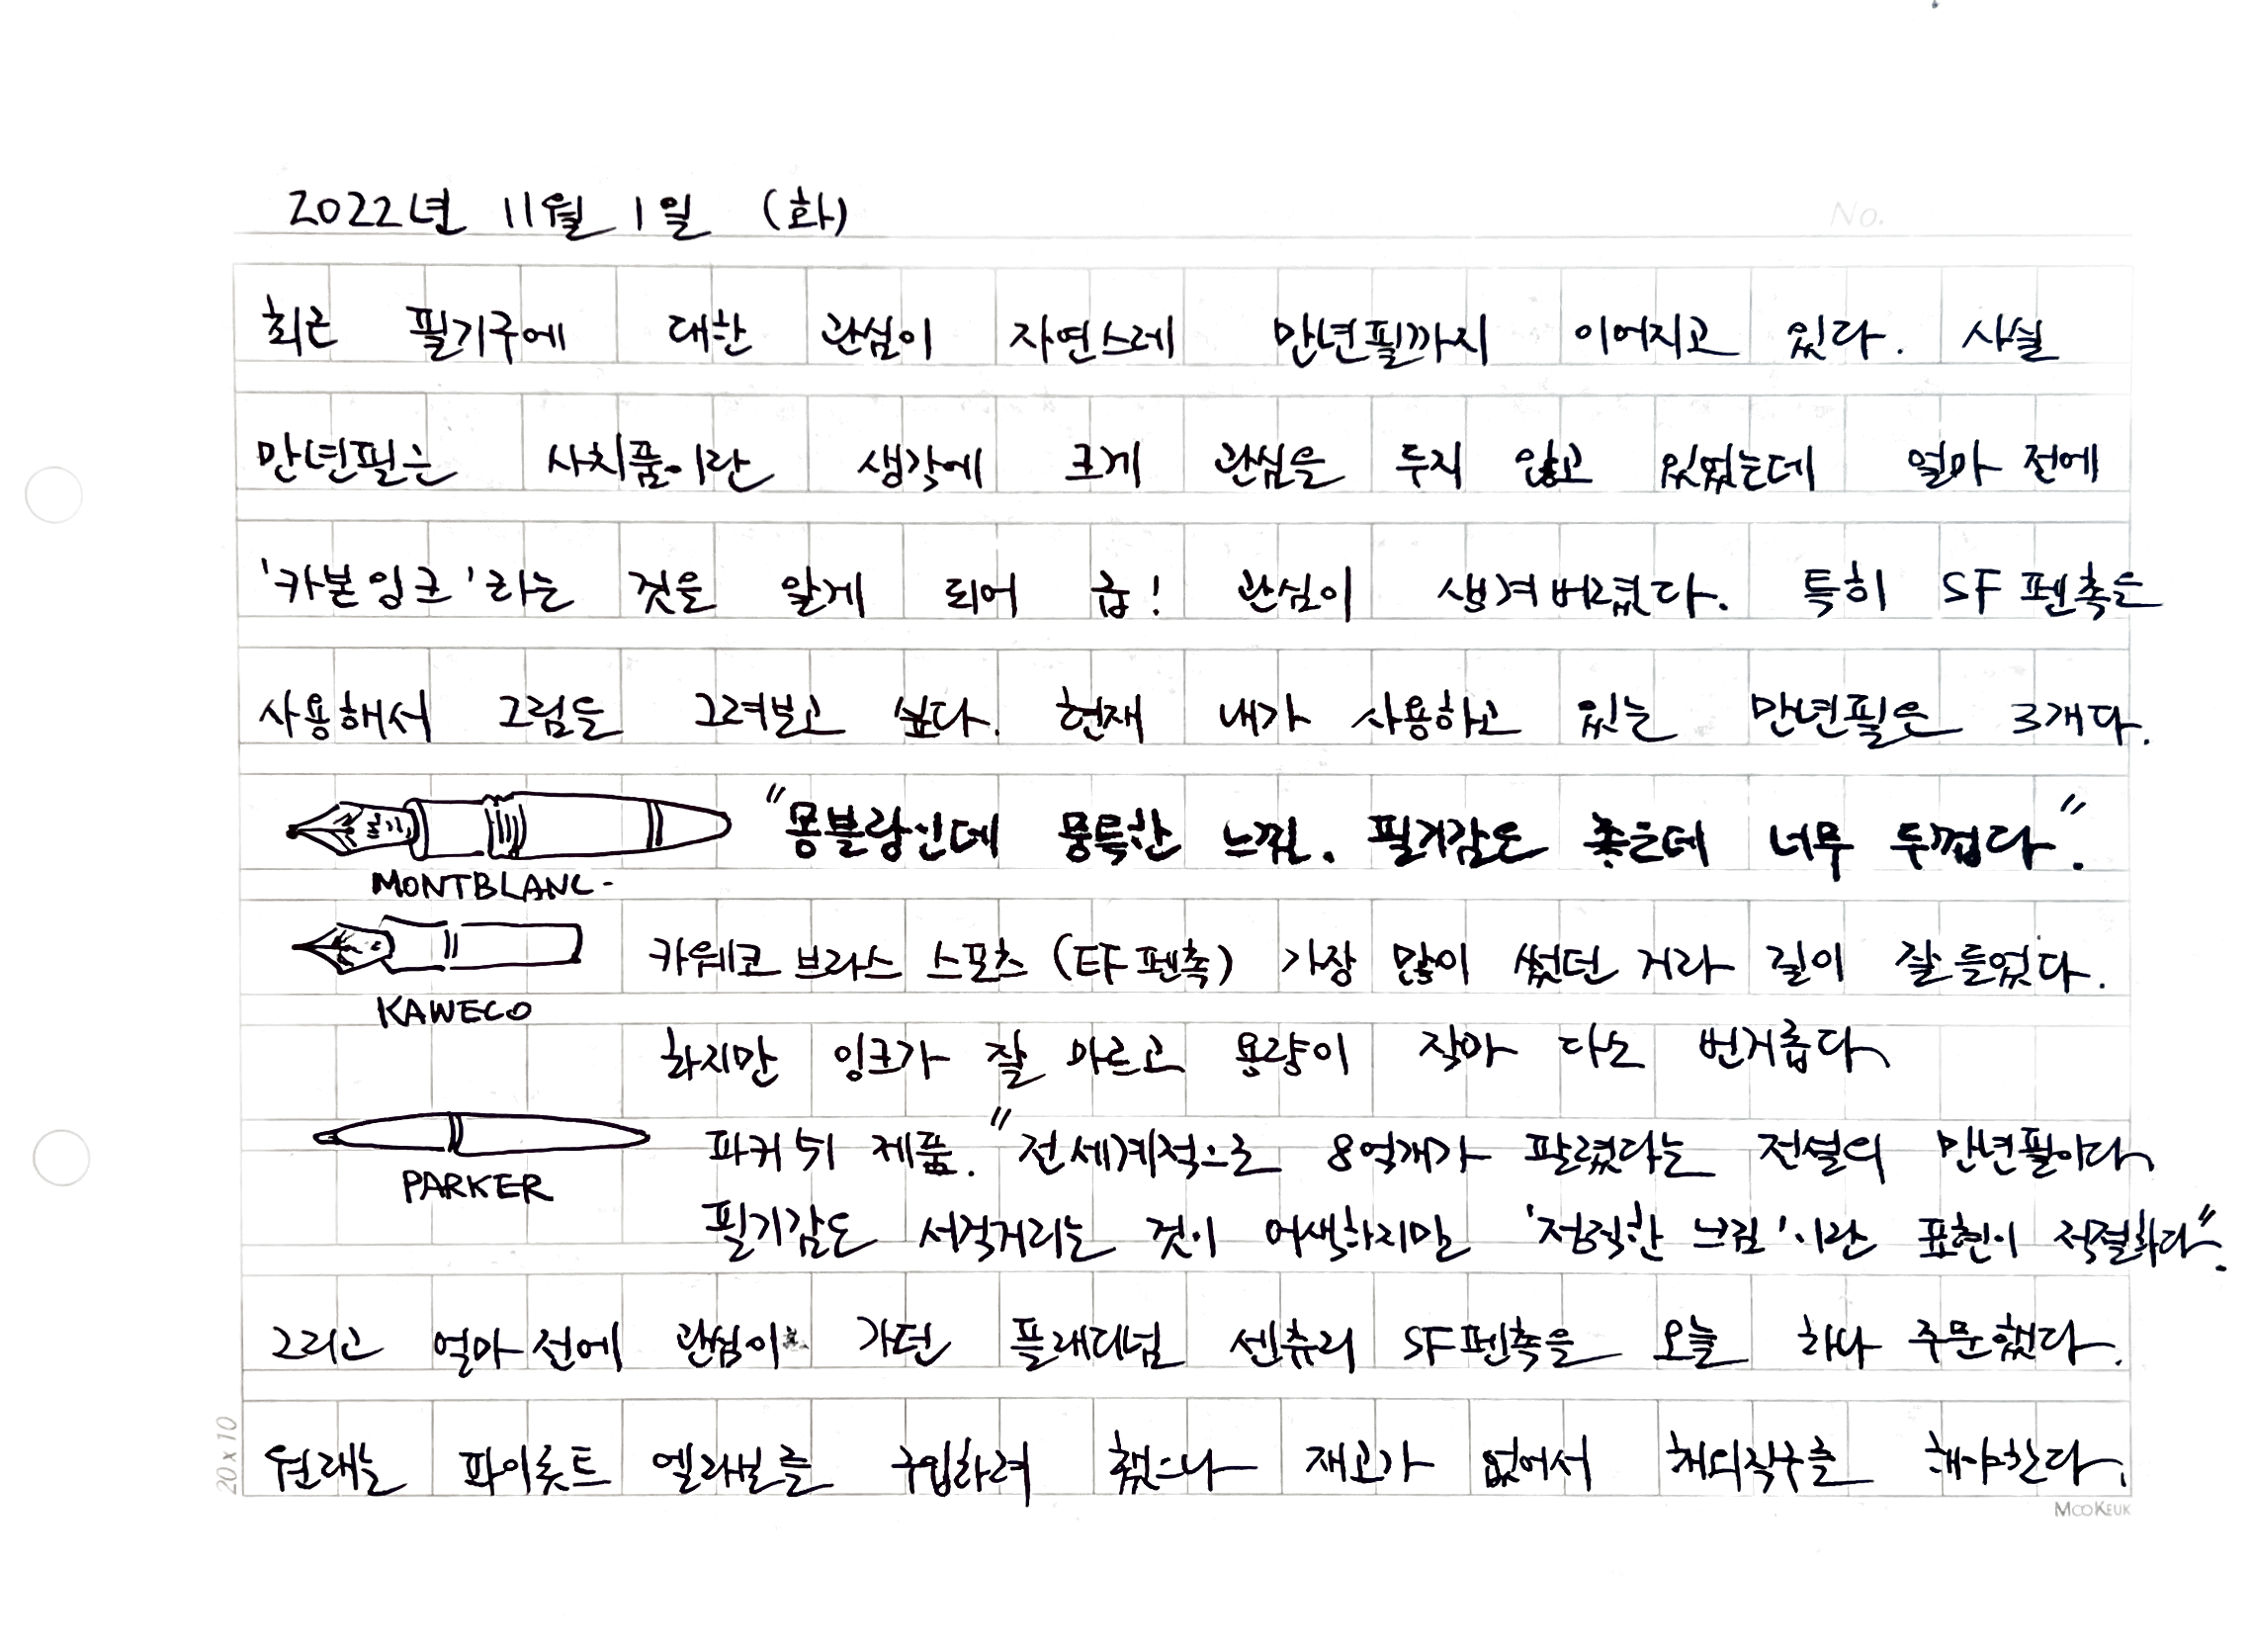 2022년 11월 1일 (화)
No.
최근 필기구에 대한 관심이 자연스레 만년필까지 이어지고 있다. 사실
만년필은 사치품이란 생각에 크게 관심을 두지 않고 있었는데 얼마 전에
'카본잉크'라는 것을 알게 되어 급! 관심이 생겨버렸다. 특히 SF 펜촉을
사용해서 그림을 그려보고 싶다. 현재 내가 사용하고 있는 만년필은 3개다.
"몽블랑인데 뭉툭한 느낌. 필기감도 좋은데 너무 두껍다".
MONTBLANC
카웨코 브라스 스포츠 (EF펜촉) 가장 많이 썼던 거라 길이 잘 들었다.
KAWECO
하지만 잉크가 잘 마르고 용량이 작아 다소 번거롭다
파커 51 제품. "전세계적으로 8억개가 팔렸다는 전설의 만년필이다
PARKER
필기감도 서걱거리는 것이 어색하지만 '정직한 느낌'이란 표현이 적절하다".
그리고 얼마 전에 관심이 가던 플래티넘 센츄리 SF펜촉을 오늘 하나 주문했다.
원래는 파이롯트 엘라보를 구입하려 했으나 재고가 없어서 해외직구를 해야한다.
20 x 10
MOOKEUK